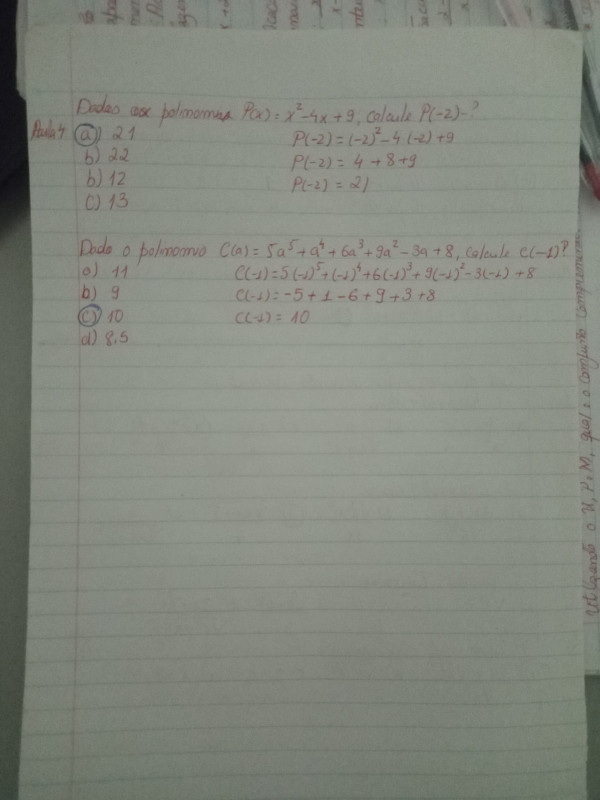 Dados polinomios P(x) = x² - 4x + 9, calcule P(-2) - ?
Aula 4 a) 21 P(-2) = (-2)² - 4 (-2) + 9
b) 22 P(-2) = 4 + 8 + 9
b) 12 P(-2) = 21
c) 13
Dado o polinomio C(a) = 5a⁵ + a⁴ + 6a³ + 9a² - 3a + 8, calcule c(-1)?
a) 11 C(-1) = 5(-1)⁵ + (-1)⁴ + 6(-1)³ + 9(-1)² - 3(-1) + 8
b) 9 C(-1) = -5 + 1 - 6 + 9 + 3 + 8
c) 10 C(-1) = 10
d) 8,5
utilizando o U, P e M, qual é o conjunto complementar